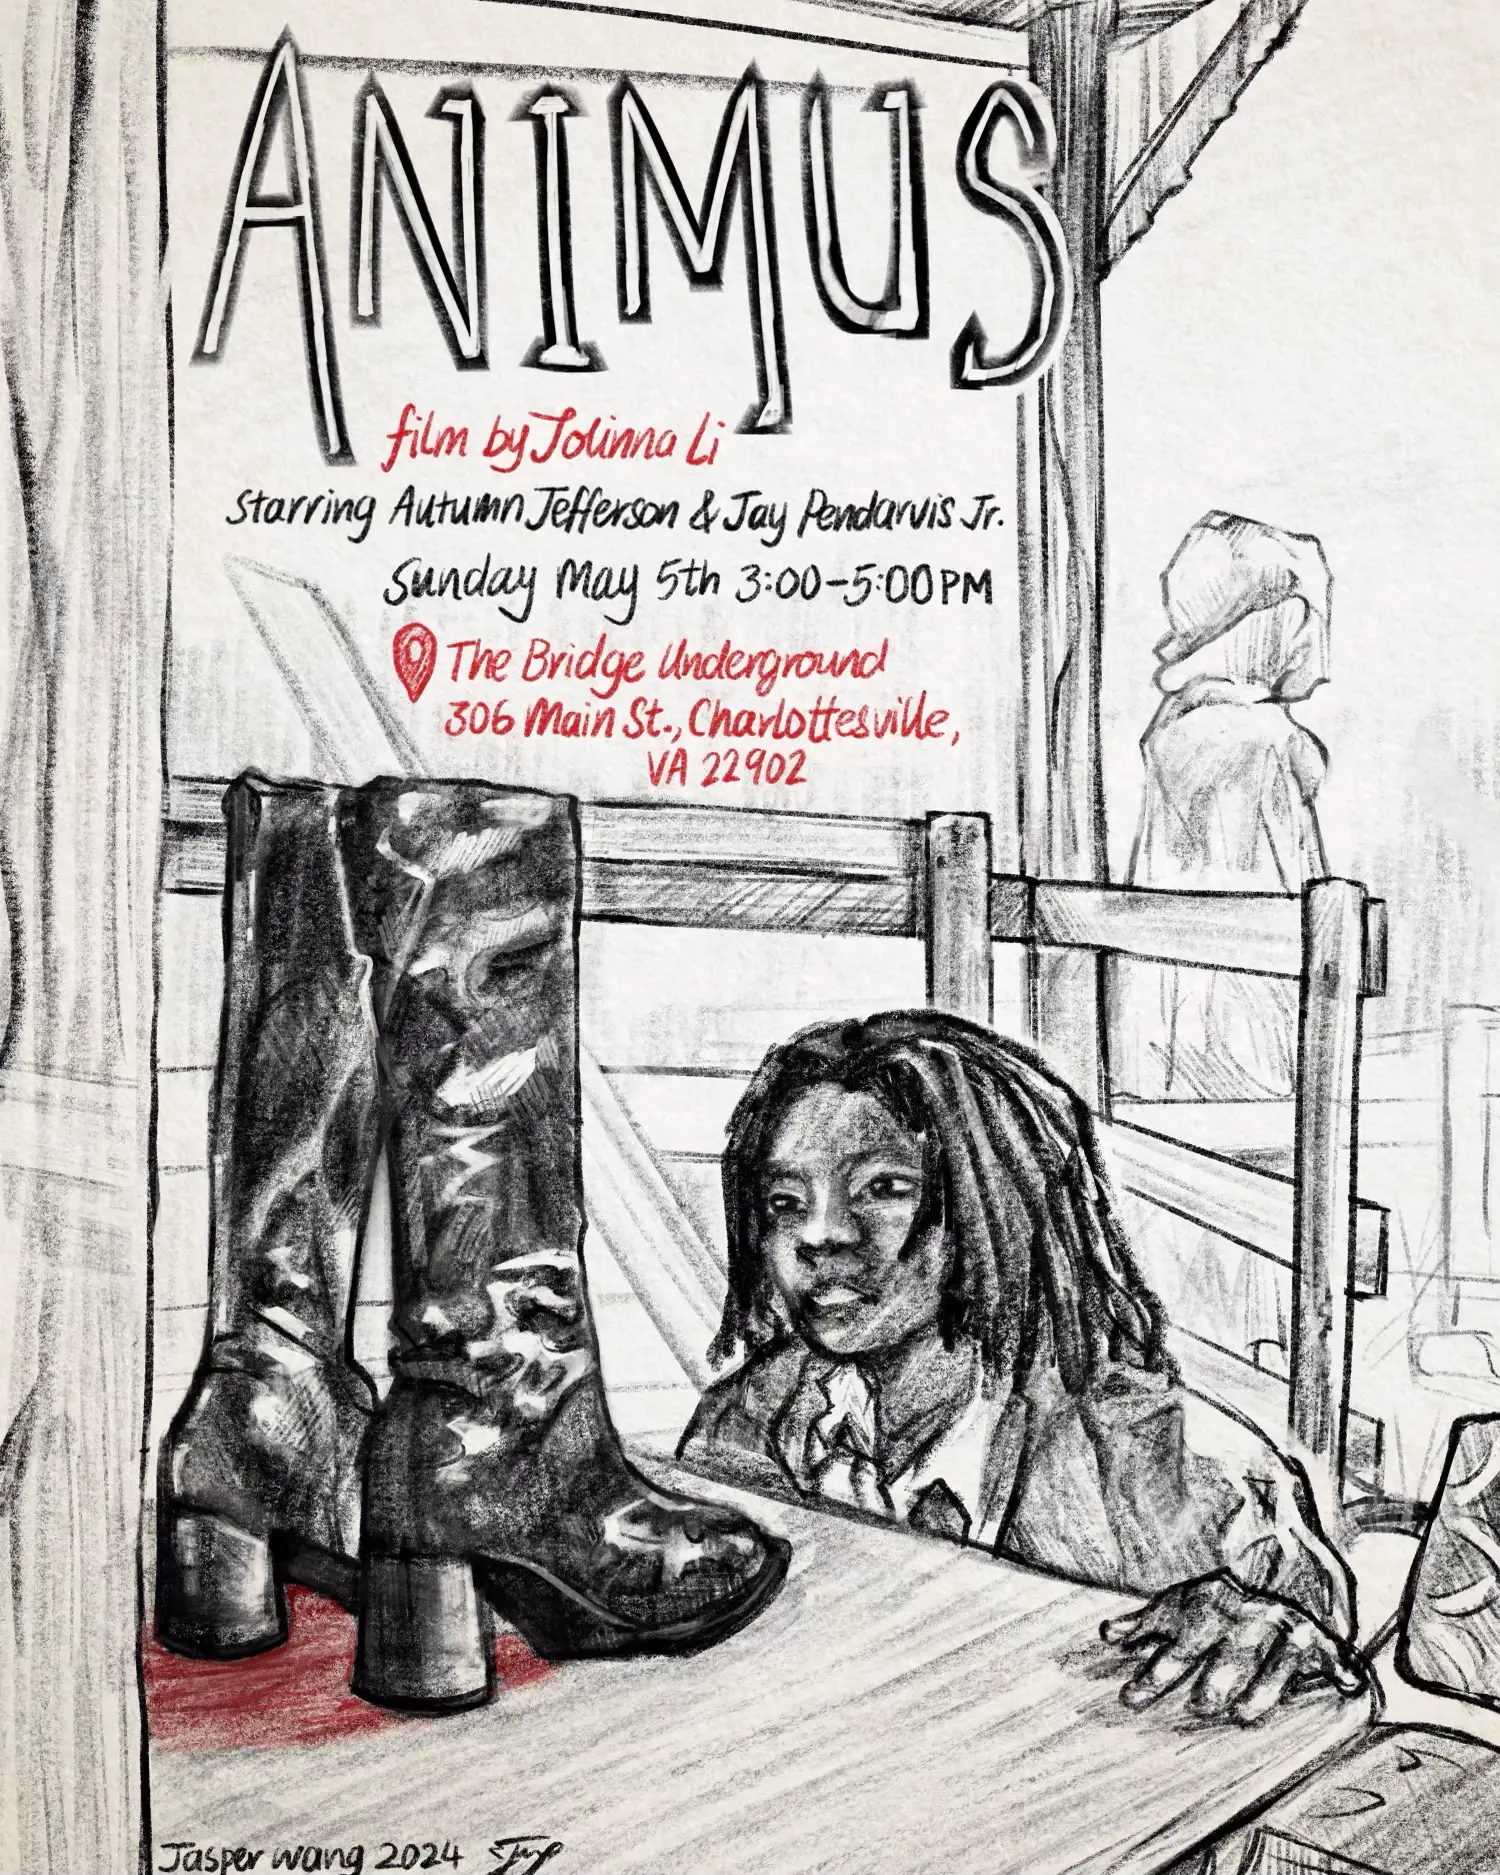 ANIMUS
film by Jolinna Li
Starring Autumn Jefferson & Jay Pendarvis Jr.
Sunday May 5th 3:00-5:00PM
The Bridge Underground
306 Main St., Charlottesville,
VA 22902
Jasper wang 2024